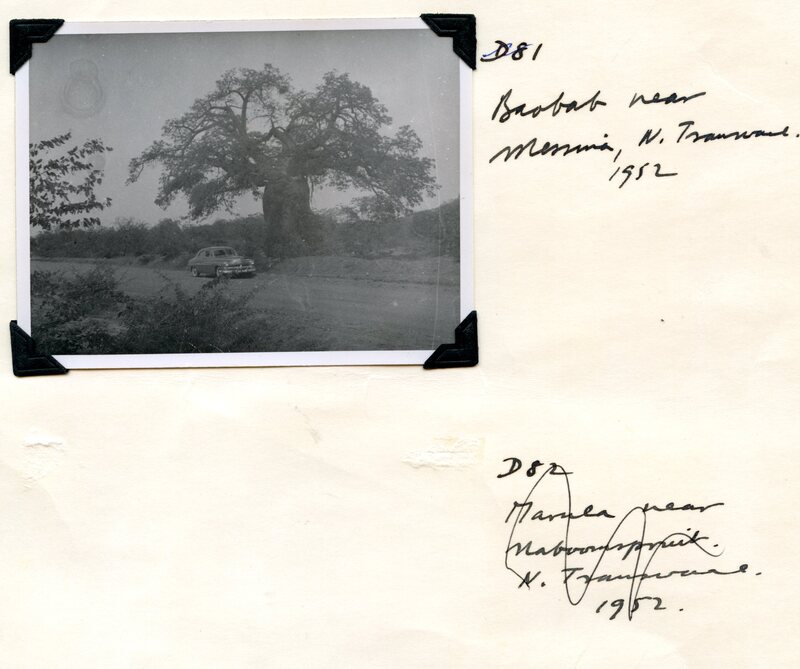 D81
Baobab near
Messina, N. Transvaal.
1952
D82
Marula near
Naboomspruit.
N. Transvaal.
1952.